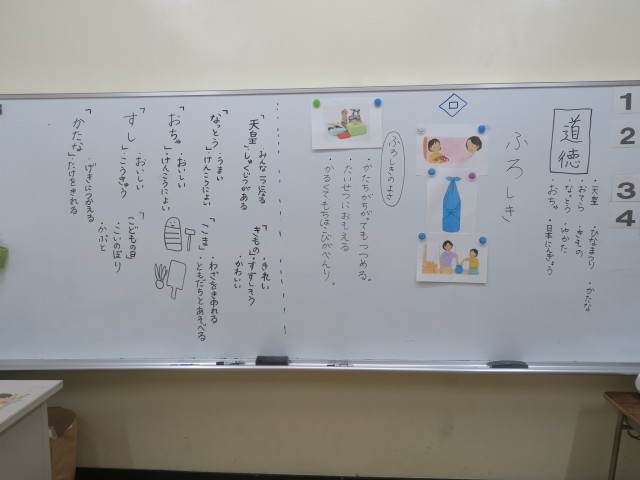 1
2
3
4
道徳
・天皇 ・ひなまつり ・かたな
・おてら ・きもの
・なっとう ・ゆかた
・おちゃ ・日本にんぎょう
ふろしき
回
ふろしきのよさ
・かたちがちがってもつつめる。
・たいせつにおもえる
・かるくてもちはこびがべんり。
「天皇」 みんな一つになる
・しゅくじつがある
「きもの」 ・きれい
・すずしそう
・かわいい
「なっとう」 ・うまい
・けんこうによい
「こま」 ・わざをきわれる
・ともだちとあそべる
「おちゃ」 ・おいしい
・けんこうによい
「すし」 ・おいしい
・こうきゅう
「こどもの日」
・こいのぼり
・かぶと
「かたな」 ・げきにつかえる
・たけをきれる